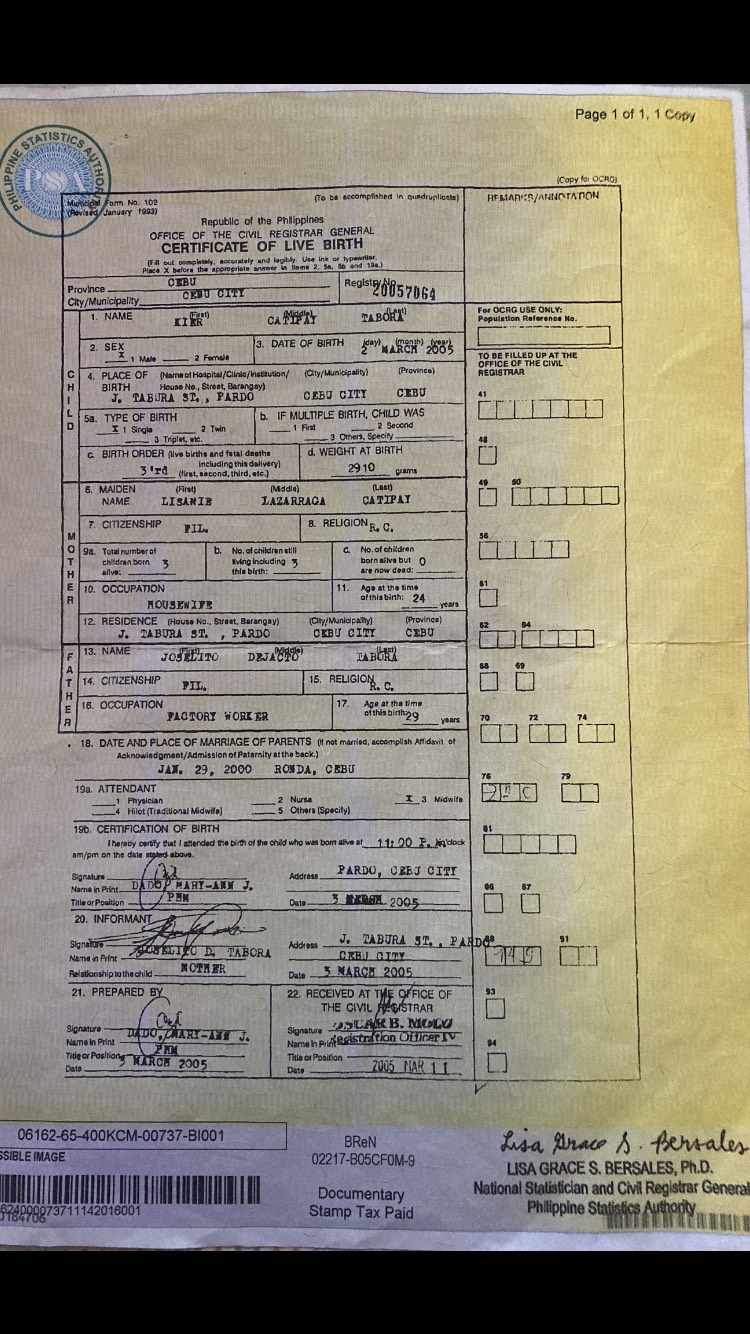 Page 1 of 1, 1 Copy
PHILIPPINE STATISTICS AUTHORITY
PSA
(Copy for OCRG)
Municipal Form No. 102
(Revised January 1993)
(To be accomplished in quadruplicate)
REMARKS/ANNOTATION
Republic of the Philippines
OFFICE OF THE CIVIL REGISTRAR GENERAL
CERTIFICATE OF LIVE BIRTH
(Fill out completely, accurately and legibly. Use ink or typewriter.
Place X before the appropriate answer in Items 2, 5a, 5b and 19a.)
Province CEBU
City/Municipality CEBU CITY
Registry No. 20057064
CHILD
1. NAME (First) (Middle) (Last)
KIER CATIPAY TABORA
For OCRG USE ONLY:
Population Reference No.
2. SEX
X 1 Male 2 Female
3. DATE OF BIRTH (day) (month) (year)
2 MARCH 2005
TO BE FILLED UP AT THE
OFFICE OF THE CIVIL
REGISTRAR
4. PLACE OF BIRTH (Name of Hospital/Clinic/Institution/ House No., Street, Barangay) (City/Municipality) (Province)
J. TABURA ST., PARDO CEBU CITY CEBU
41
5a. TYPE OF BIRTH
X 1 Single 2 Twin
3 Triplet, etc.
b. IF MULTIPLE BIRTH, CHILD WAS
1 First 2 Second
3 Others, Specify
48
c. BIRTH ORDER (live births and fetal deaths
including this delivery)
3'rd (first, second, third, etc.)
d. WEIGHT AT BIRTH
2910 grams
49 50
MOTHER
6. MAIDEN NAME (First) (Middle) (Last)
LISANIE LAZARRAGA CATIPAY
7. CITIZENSHIP FIL.
8. RELIGION R. C.
56
9a. Total number of
children born alive: 3
b. No. of children still
living including this birth: 3
c. No. of children
born alive but are now dead: 0
10. OCCUPATION
HOUSEWIFE
11. Age at the time
of this birth: 24 years
61
12. RESIDENCE (House No., Street, Barangay) (City/Municipality) (Province)
J. TABURA ST. , PARDO CEBU CITY CEBU
62 64
FATHER
13. NAME (First) (Middle) (Last)
JOSELITO DEJACTO TABORA
68 69
14. CITIZENSHIP FIL.
15. RELIGION R. C.
16. OCCUPATION
FACTORY WORKER
17. Age at the time
of this birth: 29 years
70 72 74
18. DATE AND PLACE OF MARRIAGE OF PARENTS (If not married, accomplish Affidavit of
Acknowledgment/Admission of Paternity at the back.)
JAN. 29, 2000 RONDA, CEBU
76 79
19a. ATTENDANT
1 Physician 2 Nurse X 3 Midwife
4 Hilot (Traditional Midwife) 5 Others (Specify)
19b. CERTIFICATION OF BIRTH
I hereby certify that I attended the birth of the child who was born alive at 11:00 P.M. o'clock
am/pm on the date stated above.
81
Signature
Name in Print DADO, MARY-ANN J.
Title or Position PHM
Address PARDO, CEBU CITY
Date 3 MARCH 2005
86 87
20. INFORMANT
Signature
Name in Print JOSELITO D. TABORA
Relationship to the child MOTHER
Address J. TABURA ST., PARDO
CEBU CITY
Date 3 MARCH 2005
88 91
21. PREPARED BY
Signature
Name in Print DADO, MARY-ANN J.
Title or Position PHM
Date 3 MARCH 2005
22. RECEIVED AT THE OFFICE OF
THE CIVIL REGISTRAR
Signature OSCAR B. MOLO
Name in Print Registration Officer IV
Title or Position
Date 2005 MAR 11
93
94
06162-65-400KCM-00737-BI001
SSIBLE IMAGE
BReN
02217-B05CF0M-9
Documentary
Stamp Tax Paid
Lisa Grace S. Bersales
LISA GRACE S. BERSALES, Ph.D.
National Statistician and Civil Registrar General
Philippine Statistics Authority